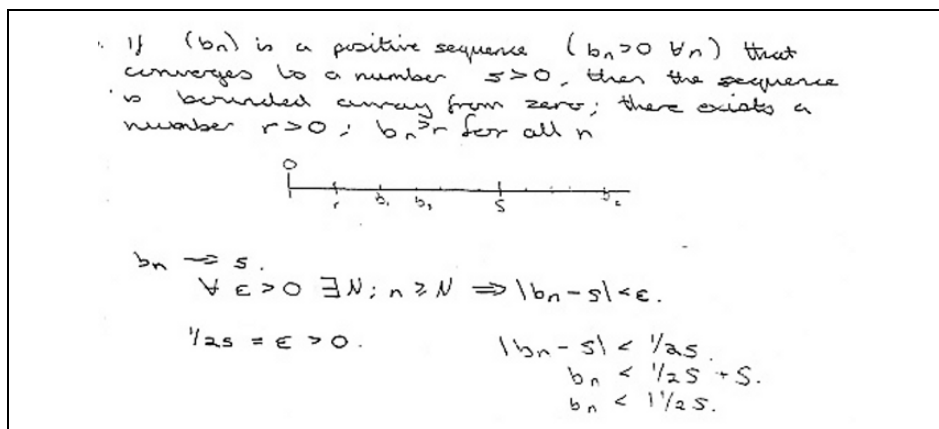 If (bn) is a positive sequence (bn>0 ∀n) that
converges to a number s>0, then the sequence
is bounded away from zero; there exists a
number r>0; bn≥r for all n
0
r b₁ b₃ S b₂
bn → s.
∀ ε>0 ∃N; n≥N ⇒ |bn-s|<ε.
1/2s = ε > 0. |bn - s| < 1/2s.
bn < 1/2s + S.
bn < 1 1/2 s.